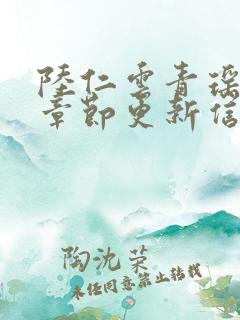 陸仁雲青瑶
章節更新信
陶沈荣
未经同意禁止转载